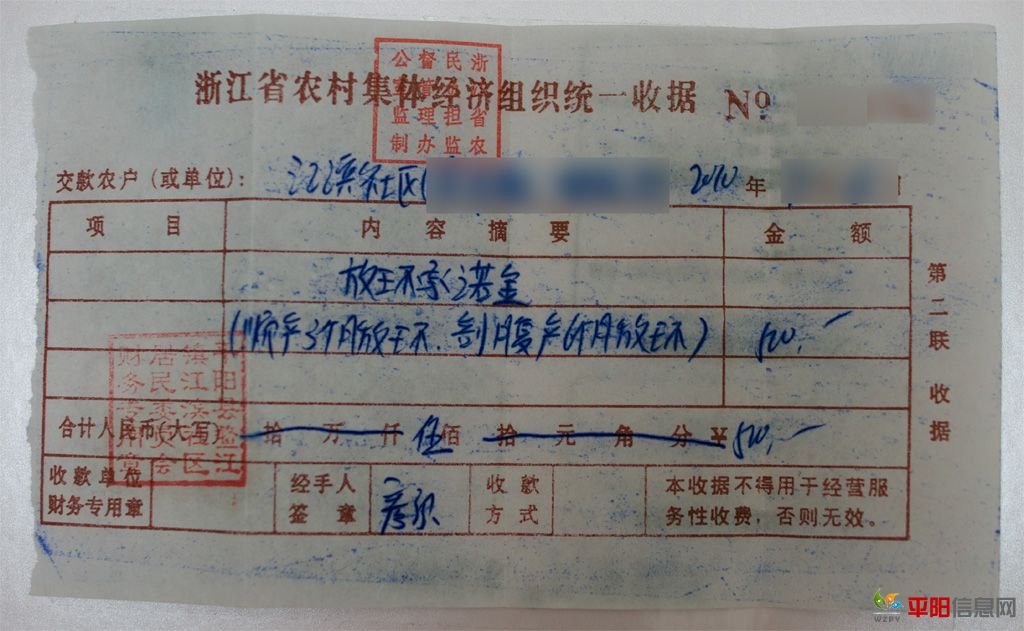 浙江省农村集体经济组织统一收据 Nº
浙江省农民负担监督管理办公室监制
交款农户（或单位）： 江滨社区 2010 年
项 目 内 容 摘 要 金 额
放环承诺金
（顺产3个月放环、剖腹产6个月放环） 500.-
合计人民币(大写) 拾 万 仟 伍 佰 拾 元 角 分 ¥ 500.-
收款单位
财务专用章
经手人
签 章
收 款
方 式
本收据不得用于经营服
务性收费，否则无效。
第二联 收据
平阳信息网
WZPY